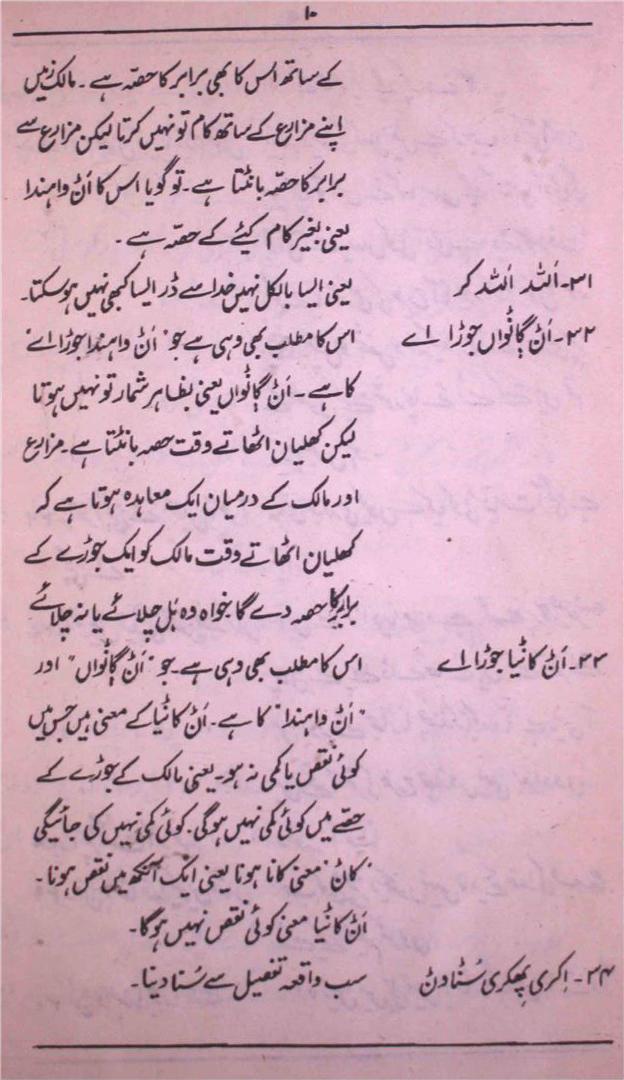 ۱۰
کے ساتھ اس کا بھی برابر کا حصّہ ہے۔ مالک زمیں
اپنے مزارع کے ساتھ کام تو نہیں کرتا لیکن مزارع سے
برابر کا حصّہ بانٹتا ہے۔ تو گویا اس کا اَنْ واہندا
یعنی بغیر کام کیئے کے حصّہ ہے۔
۳۱۔ اَللہ اَللہ کر یعنی ایسا بالکل نہیں خدا سے ڈر ایسا کبھی نہیں ہو سکتا۔
۳۲۔ اَنْ گانٹواں جوڑا اے اس کا مطلب بھی وہی ہے جو "اَنْ واہندا جوڑا اے"
کا ہے۔ اَنْ گانٹواں یعنی بظاہر شمار تو نہیں ہوتا
لیکن کھلیان اٹھاتے وقت حصہ بانٹتا ہے۔ مزارع
اور مالک کے درمیان ایک معاہدہ ہوتا ہے کہ
کھلیان اٹھاتے وقت مالک کو ایک جوڑے کے
برابر کا حصّہ دے گا خواہ وہ ہَل چلائے یا نہ چلائے
۳۳۔ اَنْ کانٹیا جوڑا اے اس کا مطلب بھی وہی ہے۔ جو "اَنْ گانٹواں" اور
"اَنْ واہندا" کا ہے۔ اَنْ کانٹیا کے معنی ہیں جس میں
کوئی نقص یا کمی نہ ہو۔ یعنی مالک کے جوڑے کے
حصّے میں کوئی کمی نہیں ہوگی۔ کوئی کمی نہیں کی جائیگی
"کان" معنی کانا ہونا یعنی ایک آنکھ میں نقص ہونا۔
اَنْ کانٹیا معنی کوئی نقص نہیں ہوگا۔
۳۴۔ اِکری پِھکری سُنا دن سب واقعہ تفصیل سے سُنا دینا۔